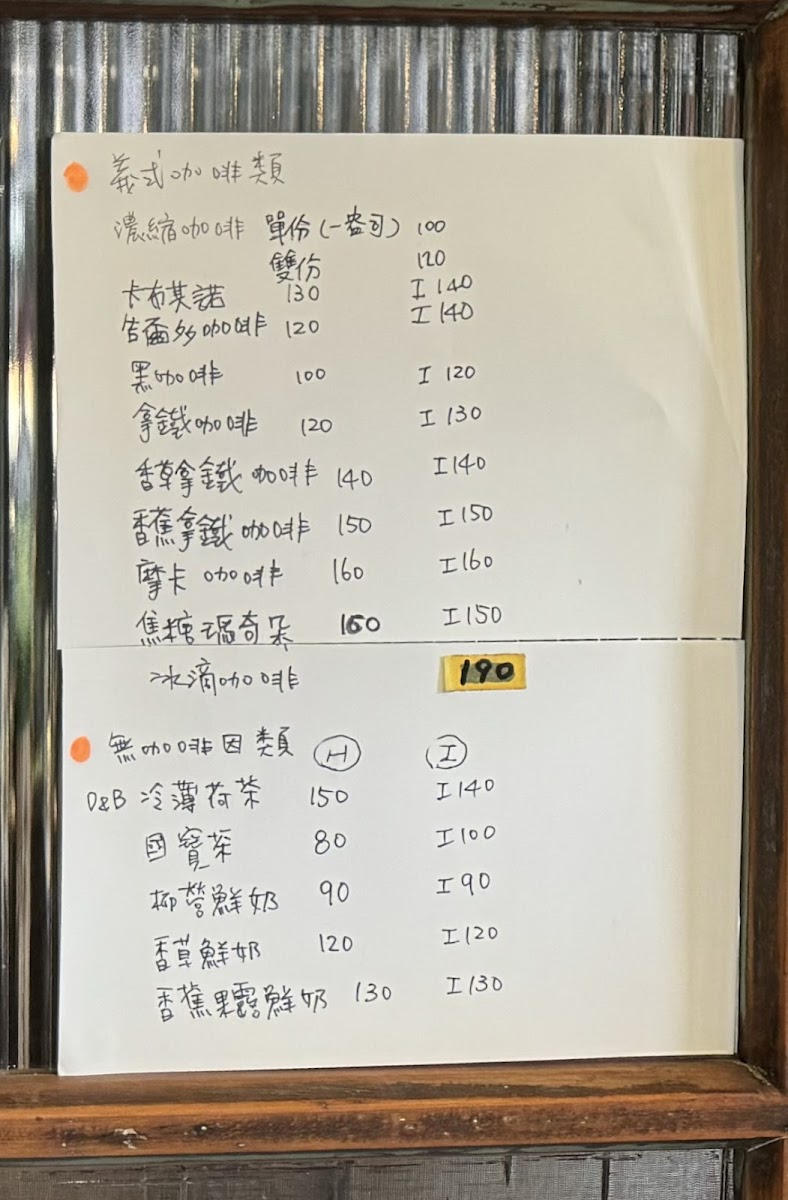 義式咖啡類
濃縮咖啡 單份(一盎司) 100
雙份 120
卡布其諾 130 I 140
告爾多咖啡 120 I 140
黑咖啡 100 I 120
拿鐵咖啡 120 I 130
香草拿鐵咖啡 140 I 140
香蕉拿鐵咖啡 150 I 150
摩卡咖啡 160 I 160
焦糖瑪奇朵 I 150
冰滴咖啡 190
無咖啡因類 H I
D&B 冷薄荷茶 150 I 140
國寶茶 80 I 100
柳營鮮奶 90 I 90
香草鮮奶 120 I 120
香蕉果露鮮奶 130 I 130